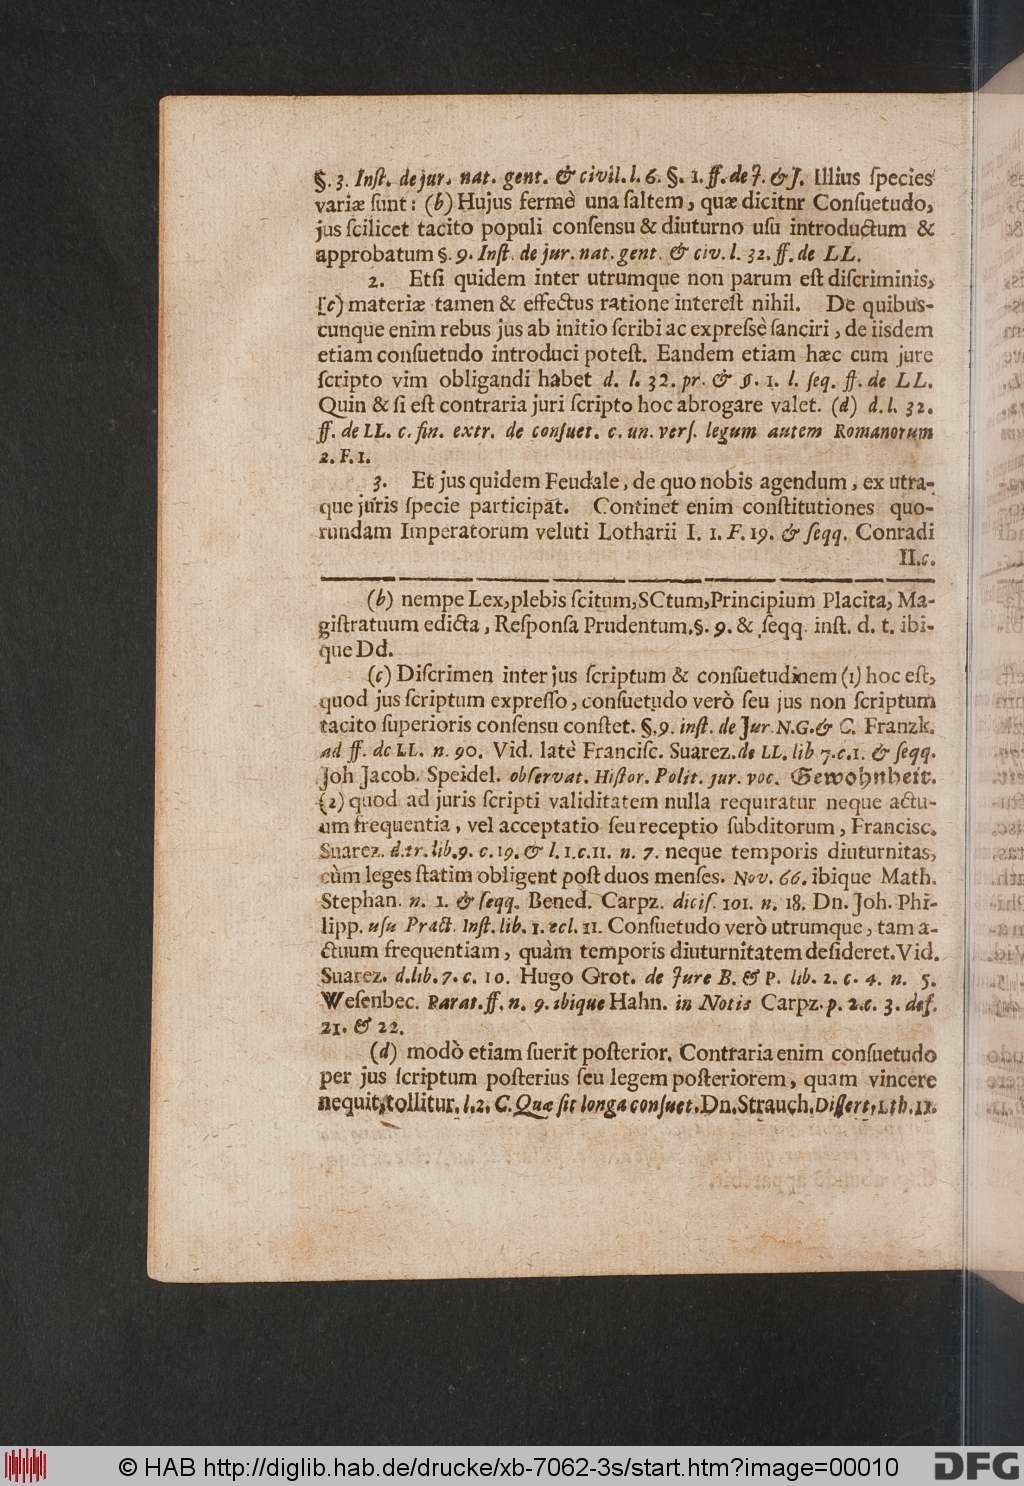 §. 3. Inſt. de jur. nat. gent. & civil. l. 6. §. 1. ff. de J. & J. Illius ſpecies
variæ ſunt: (b) Hujus fermè una ſaltem, quæ dicitnr Conſuetudo,
jus ſcilicet tacito populi conſenſu & diuturno uſu introductum &
approbatum §. 9. Inſt. de jur. nat. gent. & civ. l. 32. ff. de LL.
2. Etſi quidem inter utrumque non parum eſt diſcriminis,
[c) materiæ tamen & effectus ratione intereſt nihil. De quibus-
cunque enim rebus jus ab initio ſcribi ac expreſsè ſanciri, de iisdem
etiam conſuetudo introduci poteſt. Eandem etiam hæc cum jure
ſcripto vim obligandi habet d. l. 32. pr. & §. 1. l. ſeq. ff. de LL.
Quin & ſi eſt contraria juri ſcripto hoc abrogare valet. (d) d. l. 32.
ff. de LL. c. fin. extr. de conſuet. c. un. verſ. legum autem Romanorum
2. F. 1.
3. Et jus quidem Feudale, de quo nobis agendum, ex utra-
que juris ſpecie participat. Continet enim conſtitutiones quo-
rundam Imperatorum veluti Lotharii I. 1. F. 19. & ſeqq. Conradi
II. c.
(b) nempe Lex, plebis ſcitum, SCtum, Principium Placita, Ma-
giſtratuum edicta, Reſponſa Prudentum. §. 9. & ſeqq. inſt. d. t. ibi-
que Dd.
(c) Diſcrimen inter jus ſcriptum & conſuetudinem (1) hoc eſt,
quod jus ſcriptum expreſſo, conſuetudo verò ſeu jus non ſcriptum
tacito ſuperioris conſenſu conſtet. §. 9. inſt. de Jur. N. G. & C. Franzk.
ad ff. de LL. n. 90. Vid. latè Franciſc. Suarez. de LL. lib 7. c. 1. & ſeqq.
Joh Jacob. Speidel. obſervat. Hiſtor. Polit. jur. voc. Gewohnheit.
(2) quod ad juris ſcripti validitatem nulla requiratur neque actu-
um frequentia, vel acceptatio ſeu receptio ſubditorum, Francisc.
Suarez. d. tr. lib. 9. c. 19. & l. 1. c. 11. n. 7. neque temporis diuturnitas,
cùm leges ſtatim obligent poſt duos menſes. Nov. 66. ibique Math.
Stephan. n. 1. & ſeqq. Bened. Carpz. diciſ. 101. n. 18. Dn. Joh. Phi-
lipp. uſu Pract. Inſt. lib. 1. ecl. 11. Conſuetudo verò utrumque, tam a-
ctuum frequentiam, quàm temporis diuturnitatem deſideret. Vid.
Suarez. d. lib. 7. c. 10. Hugo Grot. de Jure B. & P. lib. 2. c. 4. n. 5.
Weſenbec. Parat. ff. n. 9. ibique Hahn. in Notis Carpz. p. 2. c. 3. def.
21. & 22.
(d) modò etiam fuerit poſterior. Contraria enim conſuetudo
per jus ſcriptum poſterius ſeu legem poſteriorem, quam vincere
nequit, tollitur. l. 2. C. Quæ ſit longa conſuet. Dn. Strauch. Diſſert. Lth. 11.
© HAB http://diglib.hab.de/drucke/xb-7062-3s/start.htm?image=00010
DFG